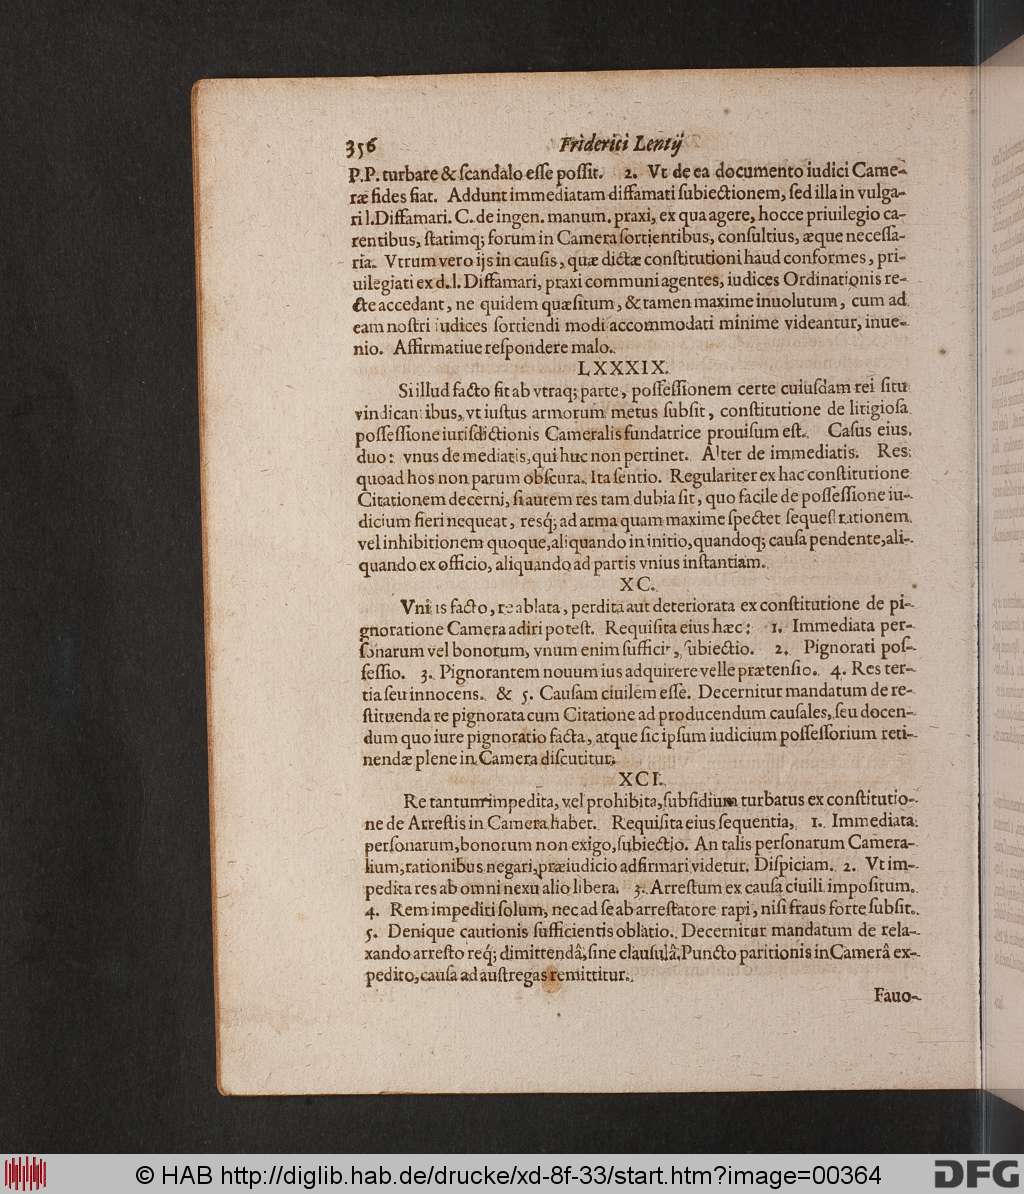 356 Friderici Lentij
P.P. turbare & ſcandalo eſſe poſſit. 2. Vt de ea documento iudici Came-
ræ fides fiat. Addunt immediatam diffamati ſubiectionem, ſed illa in vulga-
ri l. Diffamari. C. de ingen. manum. praxi, ex qua agere, hocce priuilegio ca-
rentibus, ſtatimq; forum in Camera ſortientibus, conſultius, æque neceſſa-
ria. Vtrum vero ijs in cauſis, quæ dictæ conſtitutioni haud conformes, pri-
uilegiati ex d. l. Diffamari, praxi communi agentes, iudices Ordinationis re-
cte accedant, ne quidem quæſitum, & tamen maxime inuolutum, cum ad
eam noſtri iudices ſortiendi modi accommodati minime videantur, inue-
nio. Affirmatiue reſpondere malo.
LXXXIX.
Si illud facto fit ab vtraq; parte, poſſeſſionem certe cuiuſdam rei ſitu
vindicantibus, vt iuſtus armorum metus ſubſit, conſtitutione de litigioſa
poſſeſſione iuriſdictionis Cameralis fundatrice prouiſum eſt. Caſus eius
duo: vnus de mediatis, qui huc non pertinet. Alter de immediatis. Res
quoad hos non parum obſcura. Ita ſentio. Regulariter ex hac conſtitutione
Citationem decerni, ſi autem res tam dubia ſit, quo facile de poſſeſſione iu-
dicium fieri nequeat, resq́; ad arma quam maxime ſpectet ſequeſtrationem
vel inhibitionem quoque, aliquando in initio, quandoq; cauſa pendente, ali-
quando ex officio, aliquando ad partis vnius inſtantiam.
XC.
Vnius facto, re ablata, perdita aut deteriorata ex conſtitutione de pi-
gnoratione Camera adiri poteſt. Requiſita eius hæc: 1. Immediata per-
ſonarum vel bonorum, vnum enim ſufficit, ſubiectio. 2. Pignorati poſ-
ſeſſio. 3. Pignorantem nouum ius adquirere velle prætenſio. 4. Res ter-
tia ſeu innocens. & 5. Cauſam ciuilem eſſe. Decernitur mandatum de re-
ſtituenda re pignorata cum Citatione ad producendum cauſales, ſeu docen-
dum quo iure pignoratio facta, atque ſic ipſum iudicium poſſeſſorium reti-
nendæ plene in Camera diſcutitur.
XCI.
Re tantum impedita, vel prohibita, ſubſidium turbatus ex conſtitutio-
ne de Arreſtis in Camera habet. Requiſita eius ſequentia, 1. Immediata
perſonarum, bonorum non exigo, ſubiectio. An talis perſonarum Camera-
lium, rationibus negari, præiudicio adfirmari videtur. Diſpiciam. 2. Vt im-
pedita res ab omni nexu alio libera. 3. Arreſtum ex cauſa ciuili impoſitum.
4. Rem impediti ſolum, nec ad ſe ab arreſtatore rapi, niſi fraus forte ſubſit.
5. Denique cautionis ſufficientis oblatio. Decernitur mandatum de rela-
xando arreſto req́; dimittendâ, ſine clauſulâ. Puncto paritionis in Camerâ ex-
pedito, cauſa ad auſtregas remittitur.
Fauo-
© HAB http://diglib.hab.de/drucke/xd-8f-33/start.htm?image=00364
DFG